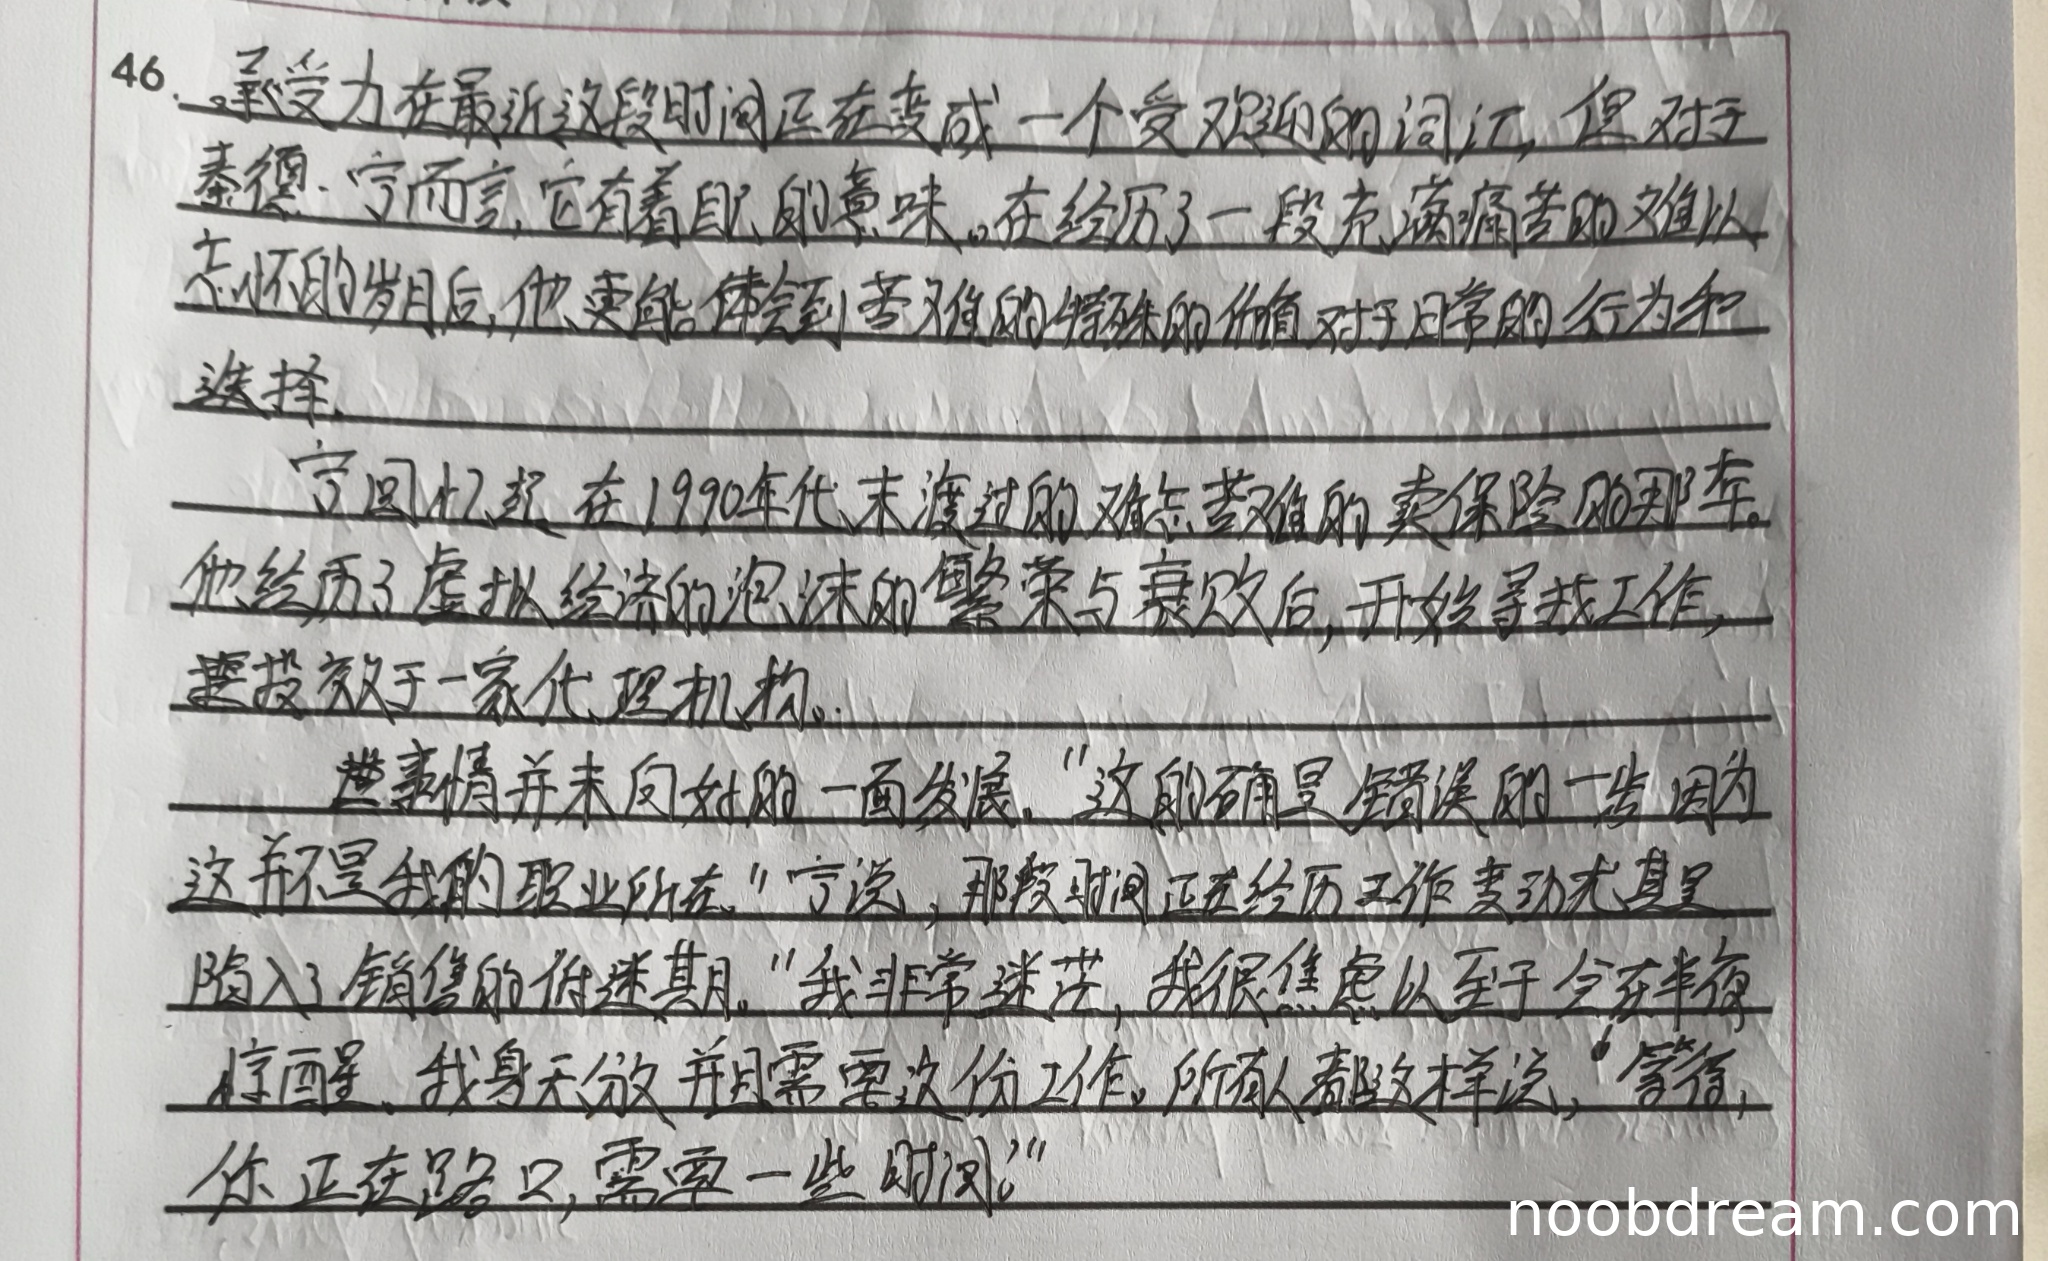 46. 承受力在最近这段时间正在变成一个受欢迎的词汇, 但对于
泰德·宁而言, 它有着自己的意味。在经历了一段充满痛苦的难以
忘怀的岁月后, 他更能体会到苦难的特殊的价值对于日常的行为和
选择.
宁回忆起在1990年代末渡过的难忘苦难的卖保险的那年。
他经历了虚拟经济的泡沫的繁荣与衰败后, 开始寻找工作,
投效于一家代理机构。
事情并未向好的一面发展. "这的确是错误的一步因为
这并不是我的职业所在." 宁说, 那段时间正在经历工作变动尤其是
陷入了销售的低迷期. "我非常迷茫, 我很焦虑以至于会在半夜
惊醒. 我身无分文并且需要这份工作. 所有人都这样说, '等待,
你正在路口, 需要一些时间.'"
noobdream.com